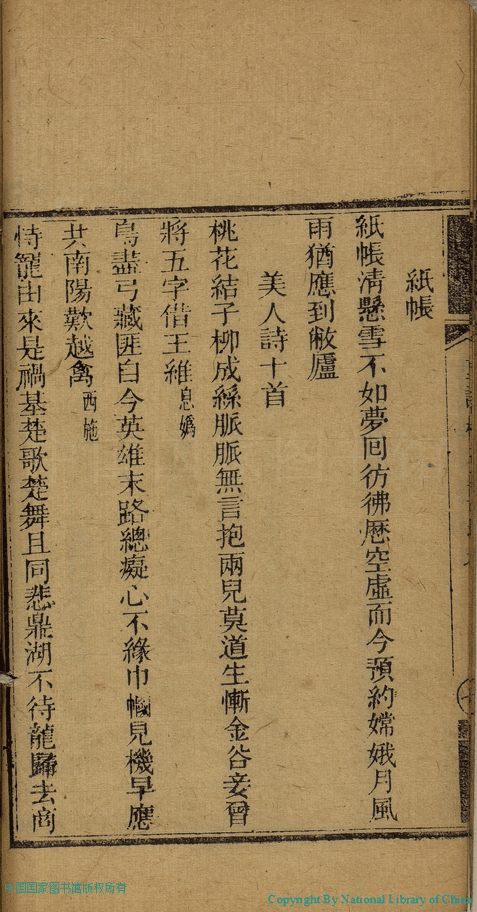 紙帳
紙帳淸懸雪不如夢回彷彿厯空虛而今預約嫦娥月風
雨猶應到敝廬
美人詩十首
桃花結子柳成絲脈脈無言抱兩兒莫道生慚金谷妾曾
將五字借王維息嬀
鳥盡弓藏匪自今英雄末路總癡心不緣巾幗見機早應
共南陽歎越禽西施
恃寵由來是禍基楚歌楚舞且同悲鼎湖不待龍歸去商
中国国家图书馆版权所有
Copyright By National Library of China